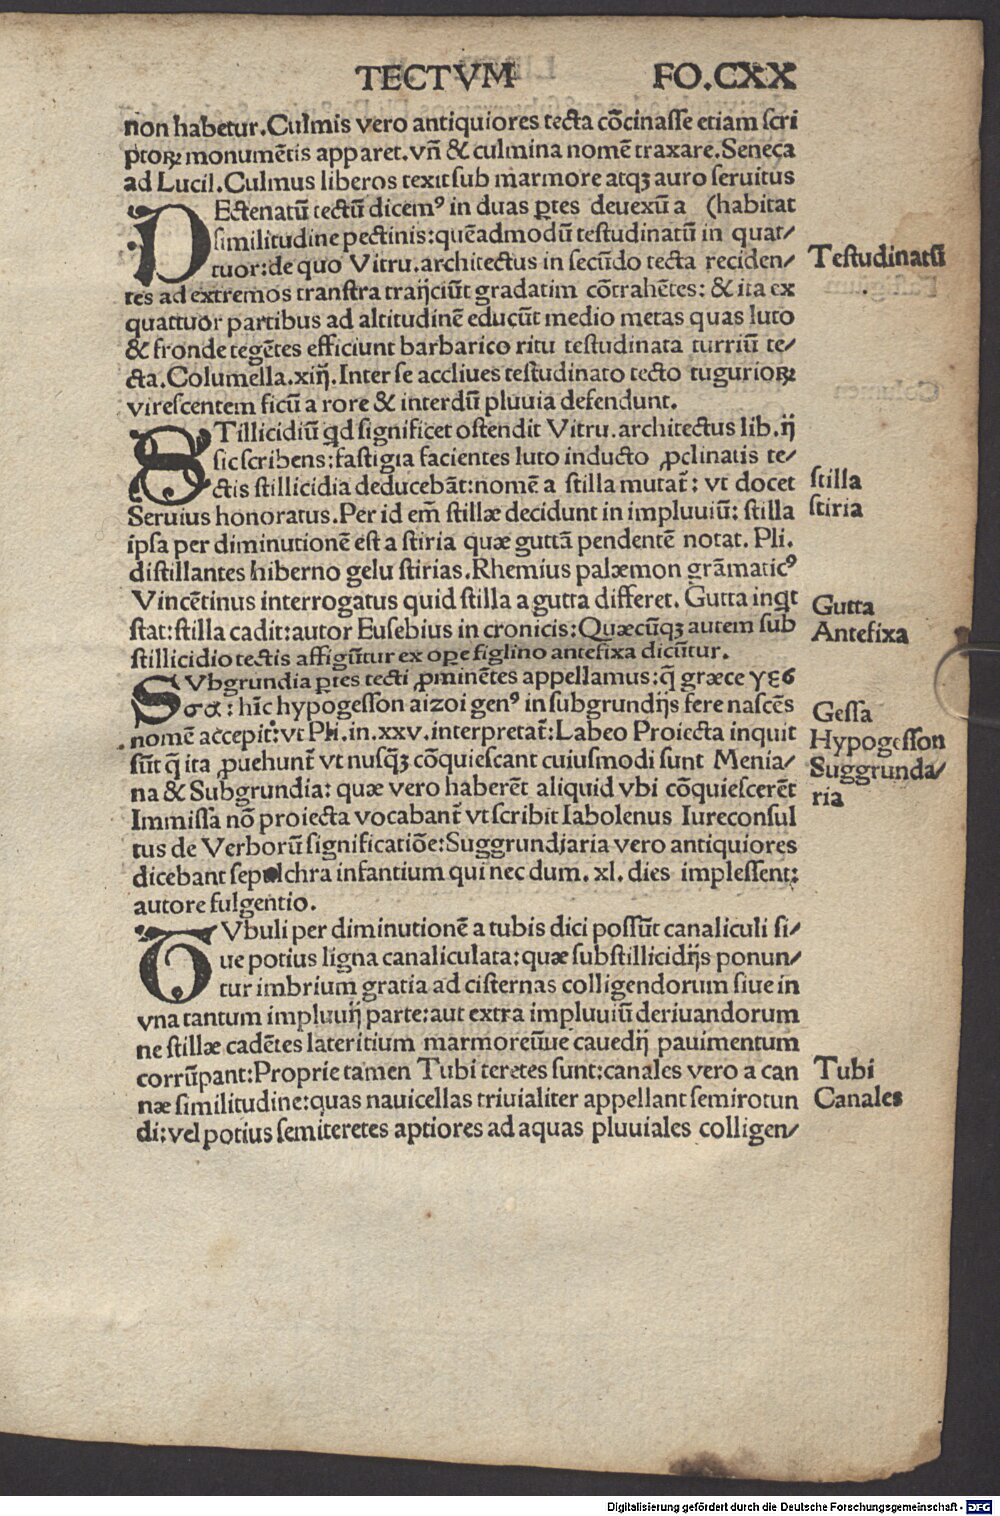 TECTVM FO.CXX
non habetur.Culmis vero antiquiores tecta cōcinasse etiam scri
ptoꝝ monumētis apparet.vñ & culmina nomē traxare.Seneca
ad Lucil.Culmus liberos texit sub marmore atqꝫ auro seruitus
PEctenatū tectū dicemꝰ in duas ꝑtes deuexū a (habitat
similitudine pectinis:quēadmodū testudinatū in quat/
tuor:de quo Vitru.architectus in secūdo tecta reciden/
tes ad extremos transtra traijciūt gradatim cōtrahētes: & ita ex
quattuor partibus ad altitudinē educūt medio metas quas luto
& fronde tegētes efficiunt barbarico ritu testudinata turriū te/
cta.Columella.xiij.Inter se accliues testudinato tecto tugurioꝝ
virescentem ficū a rore & interdū pluuia defendunt.
STillicidiū qd significet ostendit Vitru.architectus lib.ij
sic scribens:fastigia facientes luto inducto ꝓclinatis te/
ctis stillicidia deducebāt:nomē a stilla mutat̄: vt docet
Seruius honoratus.Per id em̄ stillæ decidunt in impluuiū: stilla
ipsa per diminutionē est a stiria quæ guttā pendentē notat. Pli.
distillantes hiberno gelu stirias.Rhemius palæmon grāmaticꝰ
Vincētinus interrogatus quid stilla a gutta differet. Gutta inqt
stat:stilla cadit:autor Eusebius in cronicis:Quæcūqꝫ autem sub
stillicidio tectis affigūtur ex opere figlino antefixa dicūtur.
SVbgrundia ꝑtes tecti ꝓminētes appellamus:q̄ græce γεσ
σα: hīc hypogesson aizoi genꝰ in subgrundijs fere nascēs
nomē accepit:vt Pli.in.xxv.interpretat̄:Labeo Proiecta inquit
sūt q̄ ita ꝓuehunt̄ vt nusqꝫ cōquiescant cuiusmodi sunt Menia/
na & Subgrundia: quæ vero haberēt aliquid vbi cōquiescerēt
Immissa nō proiecta vocabant̄ vt scribit Iabolenus Iureconsul
tus de Verborū significatiōe:Suggrundiaria vero antiquiores
dicebant sepulchra infantium qui nec dum. xl. dies implessent:
autore fulgentio.
TVbuli per diminutionē a tubis dici possūt canaliculi si/
ue potius ligna canaliculata:quæ substillicidijs ponun/
tur imbrium gratia ad cisternas colligendorum siue in
vna tantum impluuij parte:aut extra impluuiū deriuandorum
ne stillæ cadētes lateritium marmoreūue cauedij pauimentum
corrūpant:Proprie tamen Tubi teretes sunt:canales vero a can
næ similitudine:quas nauicellas triuialiter appellant semirotun
di:vel potius semiteretes aptiores ad aquas pluuiales colligen/
Testudinatū
stilla
stiria
Gutta
Antefixa
Gessa
Hypogesson
Suggrunda/
ria
Tubi
Canales
Digitalisierung gefördert durch die Deutsche Forschungsgemeinschaft - DFG